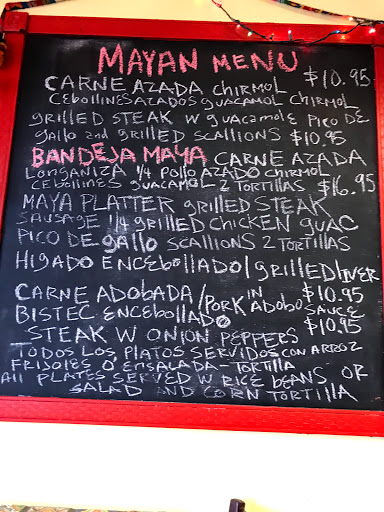 MAYAN MENU
CARNE AZADA CHIRMOL $10.95
CEBOLLINES AZADOS GUACAMOL CHIRMOL
GRILLED STEAK W GUACAMOLE PICO DE
GALLO 2nd GRILLED SCALLIONS $10.95
BANDEJA MAYA CARNE AZADA
LONGANIZA 1/4 POLLO AZADO CHIRMOL
CEBOLLINES GUACAMOL 2 TORTILLAS $16.95
MAYA PLATTER GRILLED STEAK
SAUSAGE 1/4 GRILLED CHICKEN GUAC
PICO DE GALLO SCALLIONS 2 TORTILLAS
HIGADO ENCEBOLLADO/GRILLED LIVER
$10.95
CARNE ADOBADA/PORK IN ADOBO SAUCE
BISTEC ENCEBOLLADO $10.95
STEAK W ONION PEPPERS
TODOS LOS PLATOS SERVIDOS CON ARROZ
FRIJOLES O ENSALADA-TORTILLA
All PLATES SERVED W RICE BEANS OR
SALAD AND CORN TORTILLA